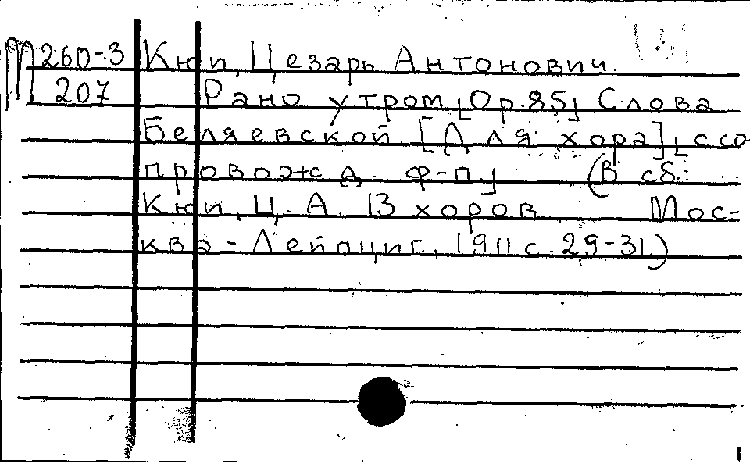 М 260-3 Кюи, Цезарь Антонович.
207 Рано утром, [Op. 85] Слова
Беляевской [Для хора], [с со
провожд. ф-п.] (В сб.:
Кюи, Ц. А. 13 хоров. Мос-
ква - Лейпциг, 1911 с. 29-31.)